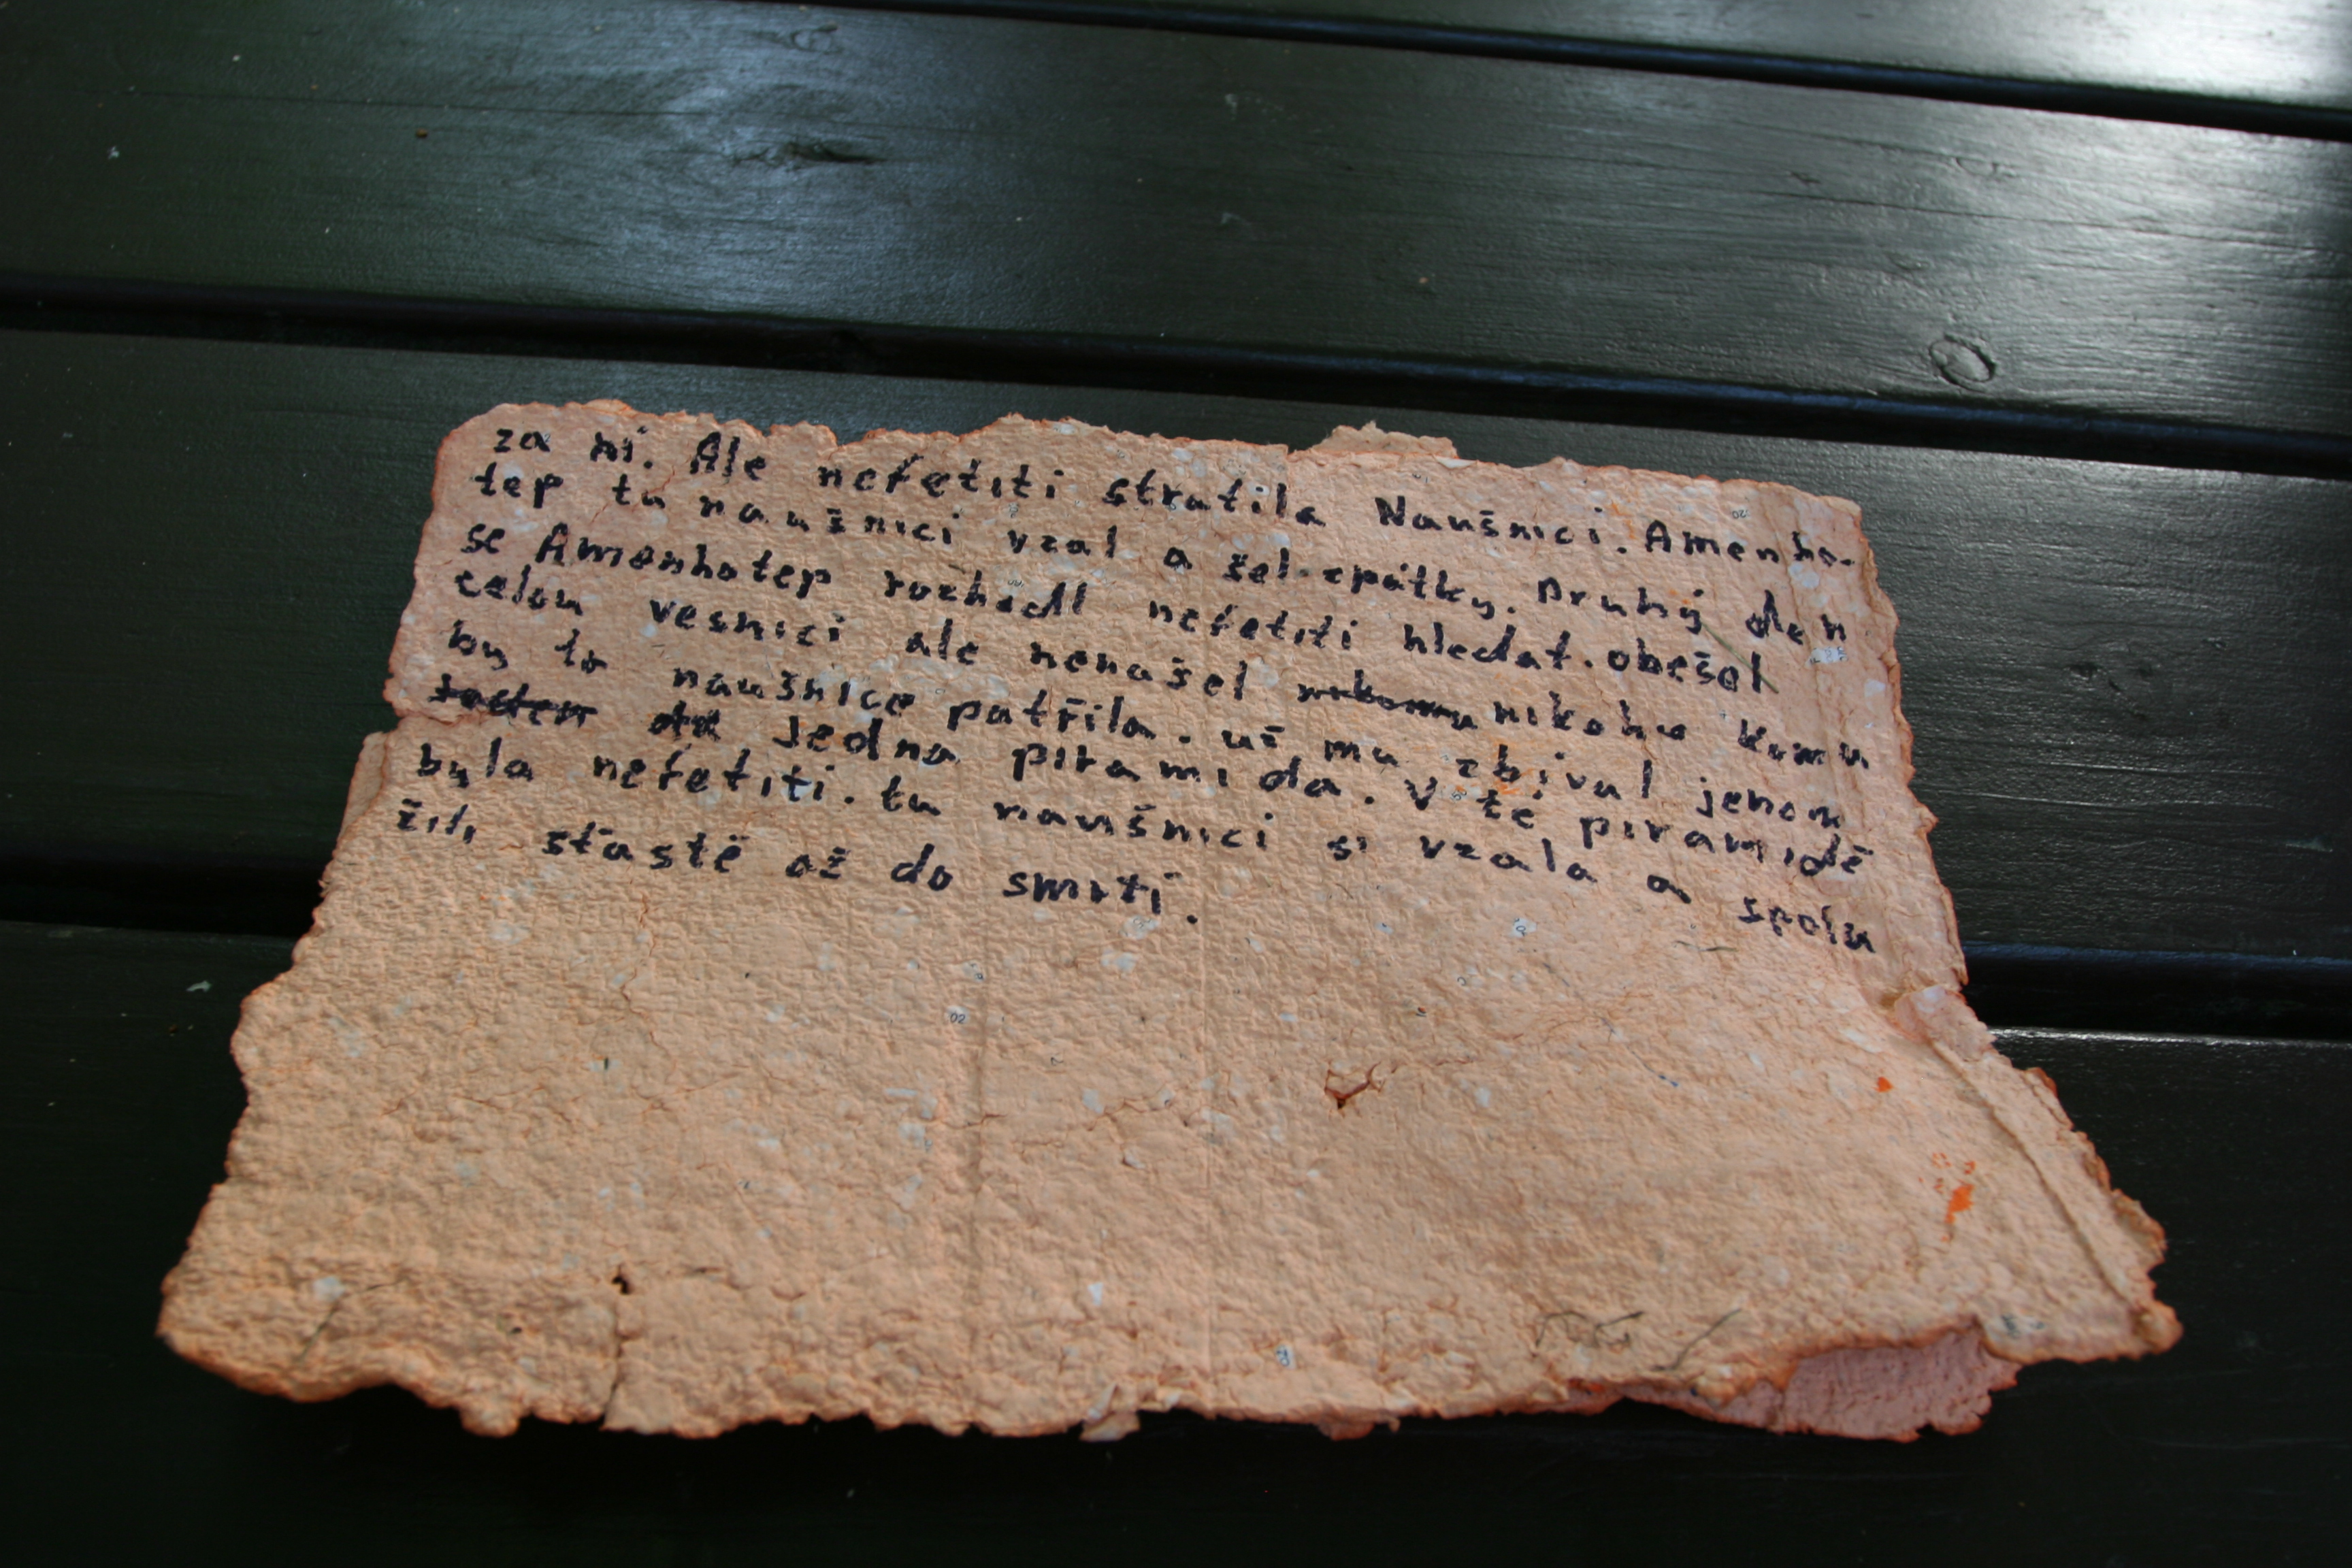 za ní. Ale nefetiti stratila Naušnici. Amenho-
tep tu naušnici vzal a šel zpátky. Druhý den
se Amenhotep rozhodl nefetiti hledat. obešel
celou vesnici ale nenašel nikoho komu
by to naušnice patřila. už mu zbíval jenom
jedna piramida. V té piramidě
byla nefetiti. tu naušnici si vzala a spolu
žili šťastě až do smrti.